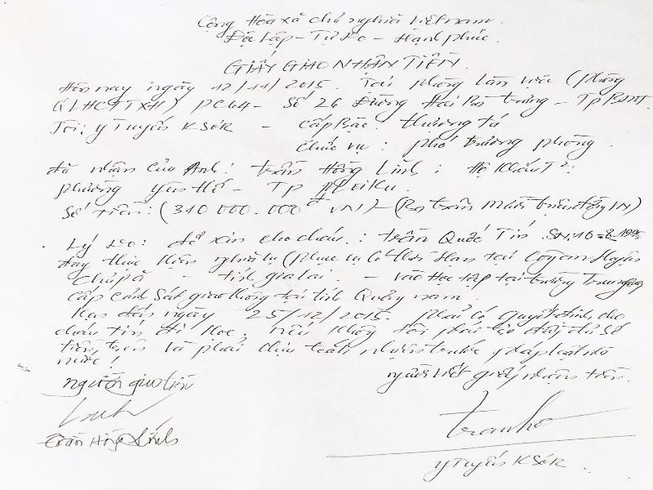 Cộng Hòa xã chủ nghĩa Việt nam
Độc Lập - Tự Do - Hạnh phúc
GIẤY GIAO NHẬN TIỀN
Hôm nay ngày 12/11/2015. Tại phòng làm việc (phòng
QLHC TTXH) PC64 - Số 26 Đường Hai Bà Trưng - Tp BMT.
Tôi: y Tuyến KSơR - Cấp Bậc: thượng tá
Chức vụ: phó trưởng phòng
đã nhận của Anh: trần Hồng Lĩnh; Hộ Khẩu
phường yên thế - TP pleiKu.
Số tiền: (310 000.000đ VN) - (Ba trăm mười triệu đồng VN)
Lý do: để xin cho cháu: trần Quốc Tín SN 16-8-1995
đang thực hiện nghĩa vụ (phục vụ có thời Hạn tại Công an Huyện
Chư pă - tỉnh gia lai - vào Học tập tại trường Trung
cấp Cảnh Sát giao thông tại tỉnh Quảng nam.
Hạn đến ngày 25/12/2015. phải có quyết định cho
cháu tín đi Học. nếu không tôi phải đầy đủ số
tiền trên và phải chịu trách nhiệm trước pháp luật nhà
nước!
người giao tiền
người viết giấy nhận tiền.
trần Hồng Lĩnh
y Tuyến KSơR